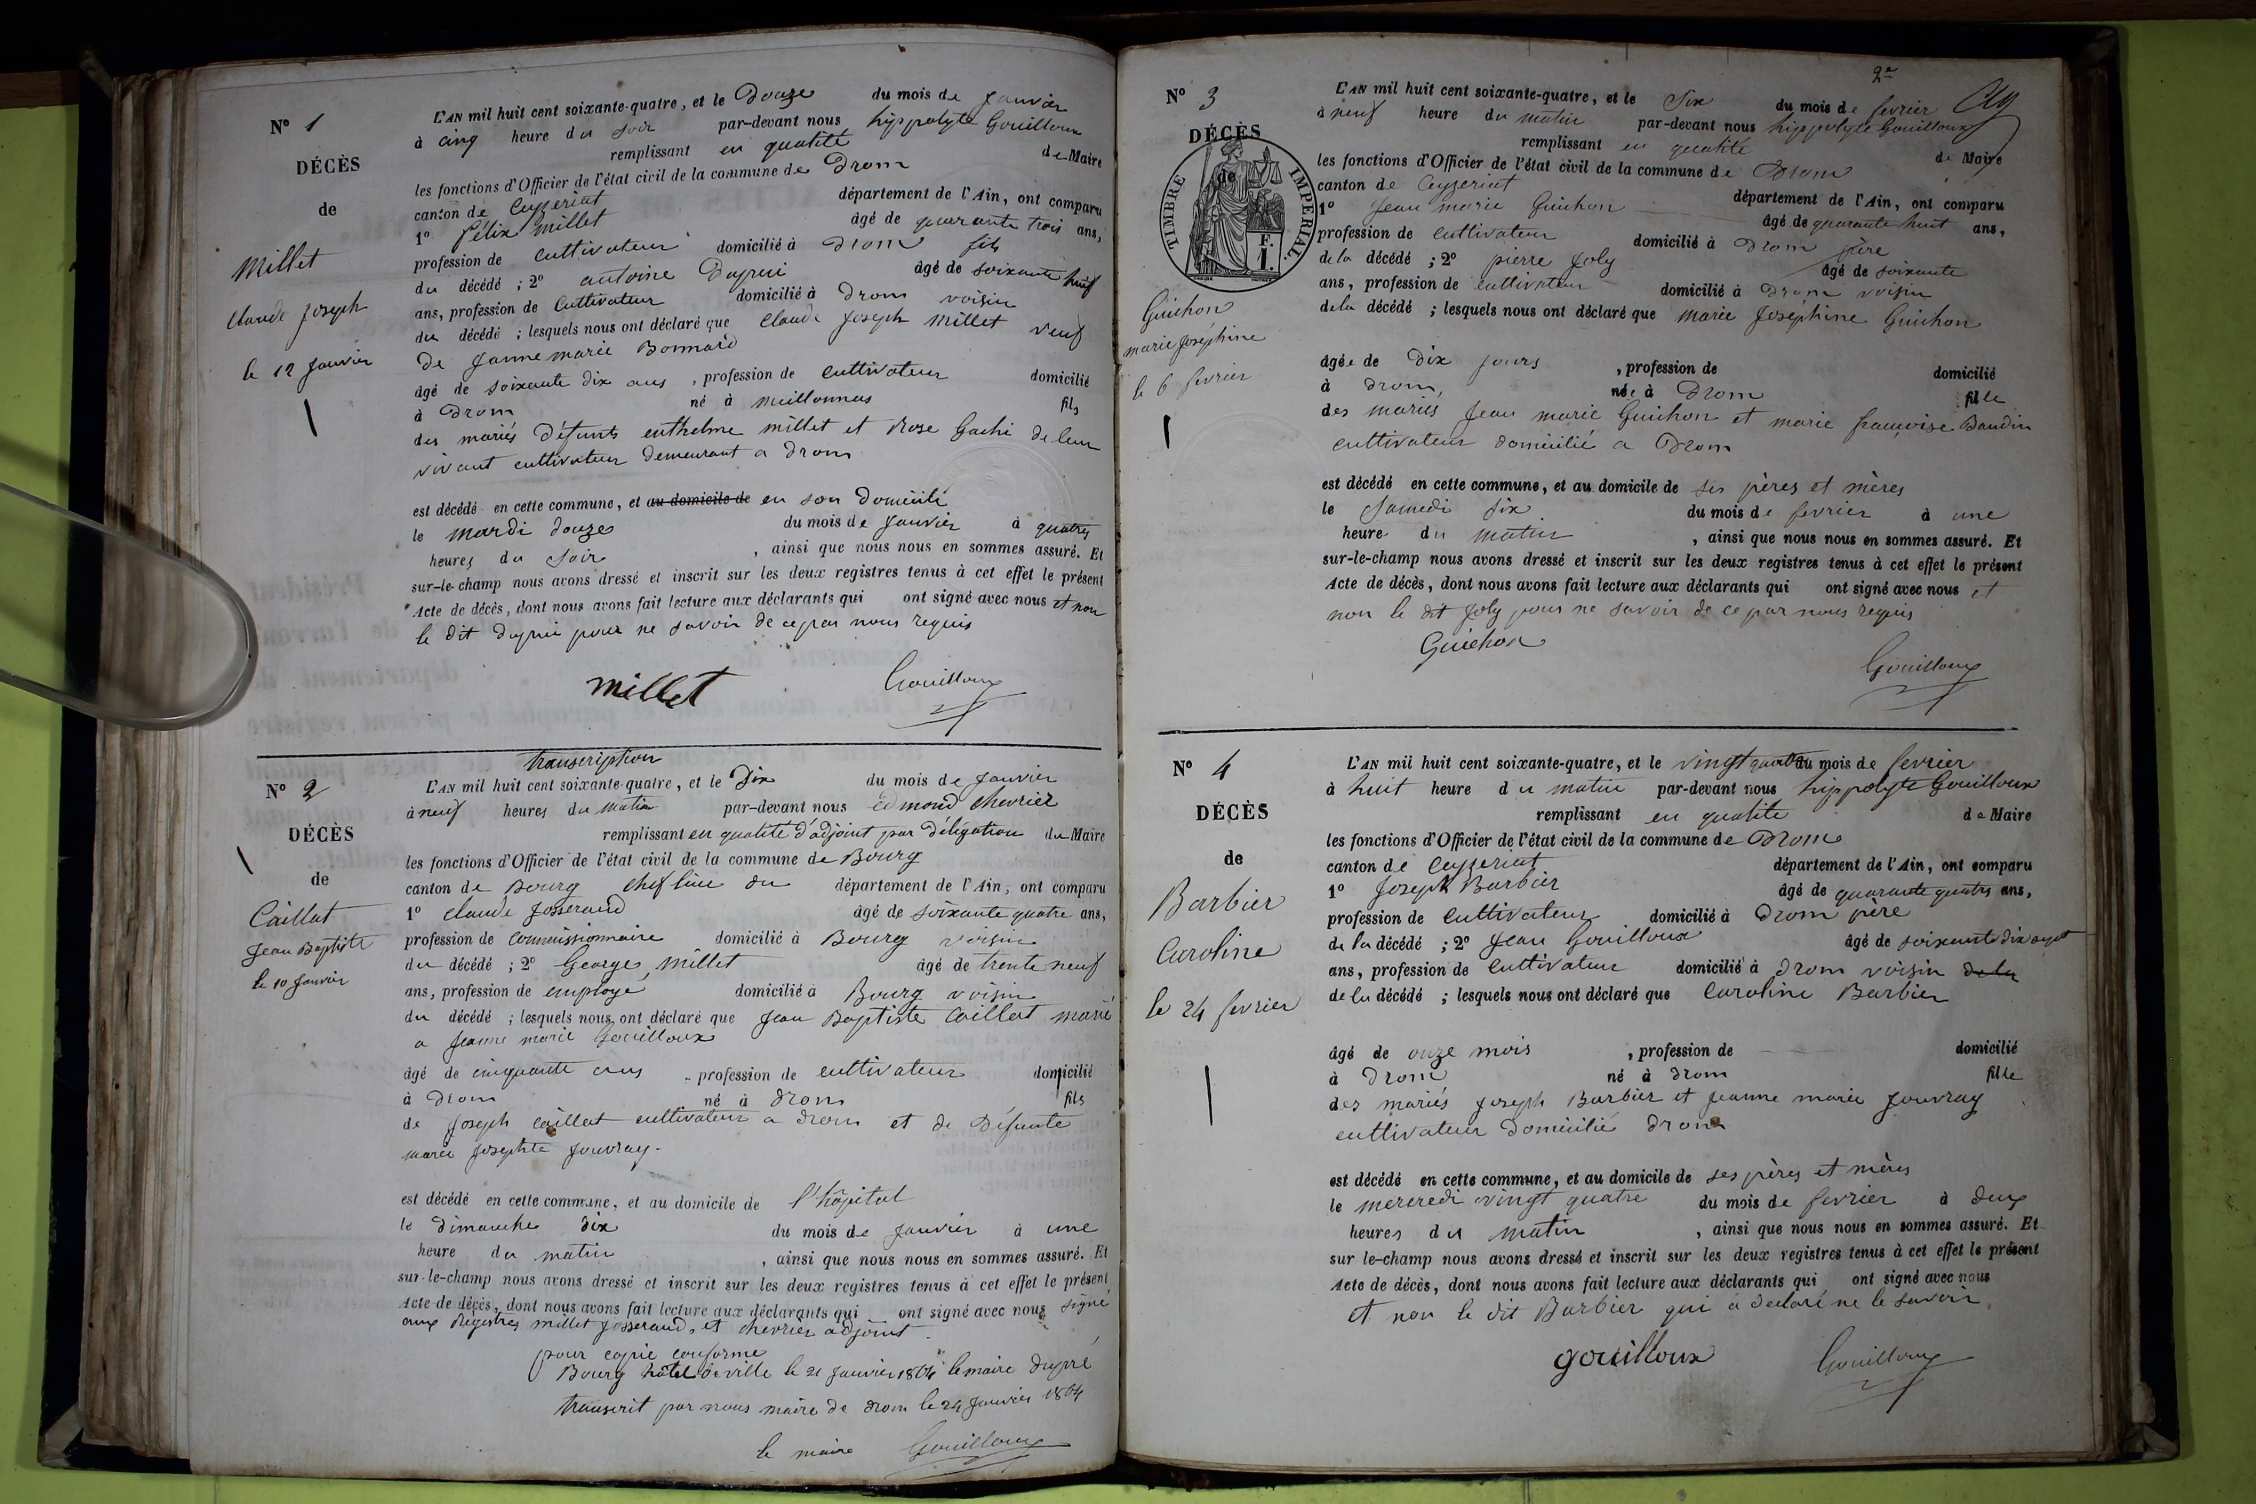 N° 1
DÉCÈS
de
Millet
claude joseph
le 12 Janvier
L'AN mil huit cent soixante-quatre, et le Douze du mois de Janvier
à cinq heure du soir par-devant nous hippolyte Gouilloux
remplissant en qualité de Maire
les fonctions d'Officier de l'état civil de la commune de Drom
canton de Ceyzeriat département de l'Ain, ont comparu
1° Félix Millet âgé de quarante trois ans,
profession de cultivateur domicilié à Drom fils
du décédé ; 2° antoine Dupui âgé de soixante huit
ans, profession de Cultivateur domicilié à Drom voisin
du décédé ; lesquels nous ont déclaré que Claude Joseph Millet veuf
de Jeanne marie Bonnard
âgé de soixante dix ans, profession de cultivateur domicilié
à Drom né à meillonnas fils
des mariés Défunts enthelme millet et Rose Gachi de leur
vivant cultivateur demeurant a Drom
est décédé en cette commune, et au domicile de en son Domicile
le mardi douze du mois de Janvier à quatre
heures du soir, ainsi que nous nous en sommes assuré. Et
sur-le-champ nous avons dressé et inscrit sur les deux registres tenus à cet effet le présent
Acte de décès, dont nous avons fait lecture aux déclarants qui ont signé avec nous et non
le dit dupui pour ne savoir de ce par nous requis
millet Gouilloux
N° 2
DÉCÈS
de
Caillat
Jean Baptiste
le 10 Janvier
transcription
L'AN mil huit cent soixante-quatre, et le Dix du mois de Janvier
à neuf heures du matin par-devant nous Edmond chevrier
remplissant en qualité d'adjoint par Déligation du Maire
les fonctions d'Officier de l'état civil de la commune de Bourg
canton de Bourg chef lieu du département de l'Ain, ont comparu
1° claude Josserand âgé de soixante quatre ans,
profession de commissionnaire domicilié à Bourg voisin
du décédé ; 2° George millet âgé de trente neuf
ans, profession de employé domicilié à Bourg voisin
du décédé ; lesquels nous ont déclaré que Jean Baptiste Caillat marié
a Jeanne marie Gouilloux
âgé de cinquante ans, profession de cultivateur domicilié
à Drom né à Drom fils
de Joseph caillat cultivateur a Drom et de Défunte
marie Josephte Jouvray.
est décédé en cette commune, et au domicile de l'hôpital
le dimanche dix du mois de Janvier à une
heure du matin, ainsi que nous nous en sommes assuré. Et
sur-le-champ nous avons dressé et inscrit sur les deux registres tenus à cet effet le présent
Acte de décès, dont nous avons fait lecture aux déclarants qui ont signé avec nous signé
aux Régistres millet Josserand, et chevrier adjoint.
pour copie conforme
Bourg hôtel de ville le 21 Janvier 1864 le maire dupré
transcrit par nous maire de Drom le 24 Janvier 1864
le maire Gouilloux
2e
N° 3
DÉCÈS
de
TIMBRE IMPÉRIAL
F.
I.
Guichon
marie Joséphine
le 6 fevrier
L'AN mil huit cent soixante-quatre, et le Six du mois de fevrier
à neuf heure du matin par-devant nous hippolyte Gouilloux
remplissant en qualité de Maire
les fonctions d'Officier de l'état civil de la commune de Drom
canton de Ceyzeriat département de l'Ain, ont comparu
1° Jean marie Guichon âgé de quarante huit ans,
profession de cultivateur domicilié à Drom père
de la décédé ; 2° pierre Joly âgé de soixante
ans, profession de cultivateur domicilié à Drom voisin
de la décédé ; lesquels nous ont déclaré que marie Joséphine Guichon
âgée de Dix jours, profession de domicilié
à Drom, née à Drom fille
des mariés Jean marie Guichon et marie françoise Baudin
cultivateur domicilié a Drom
est décédé en cette commune, et au domicile de ses pères et mères
le Samedi six du mois de fevrier à une
heure du matin, ainsi que nous nous en sommes assuré. Et
sur-le-champ nous avons dressé et inscrit sur les deux registres tenus à cet effet le présent
Acte de décès, dont nous avons fait lecture aux déclarants qui ont signé avec nous et
non le dit Joly pour ne savoir de ce par nous requis
Guichon Gouilloux
N° 4
DÉCÈS
de
Barbier
Caroline
le 24 fevrier
L'AN mil huit cent soixante-quatre, et le vingt quatre du mois de fevrier
à huit heure du matin par-devant nous hippolyte Gouilloux
remplissant en qualité de Maire
les fonctions d'Officier de l'état civil de la commune de Drom
canton de Ceyzeriat département de l'Ain, ont comparu
1° Joseph Barbier âgé de quarante quatre ans,
profession de Cultivateur domicilié à Drom père
de la décédé ; 2° Jean Gouilloux âgé de soixante dix sept
ans, profession de Cultivateur domicilié à Drom voisin de la
de la décédé ; lesquels nous ont déclaré que Caroline Barbier
âgé de onze mois, profession de domicilié
à Drom né à Drom fille
des mariés Joseph Barbier et Jeanne marie Jouvray
cultivateur Domicilié Drom
est décédé en cette commune, et au domicile de ses pères et mères
le mercredi vingt quatre du mois de fevrier à deux
heures du matin, ainsi que nous nous en sommes assuré. Et
sur le-champ nous avons dressé et inscrit sur les deux registres tenus à cet effet le présent
Acte de décès, dont nous avons fait lecture aux déclarants qui ont signé avec nous
et non le dit Barbier qui a declaré ne le savoir
gouilloux Gouilloux